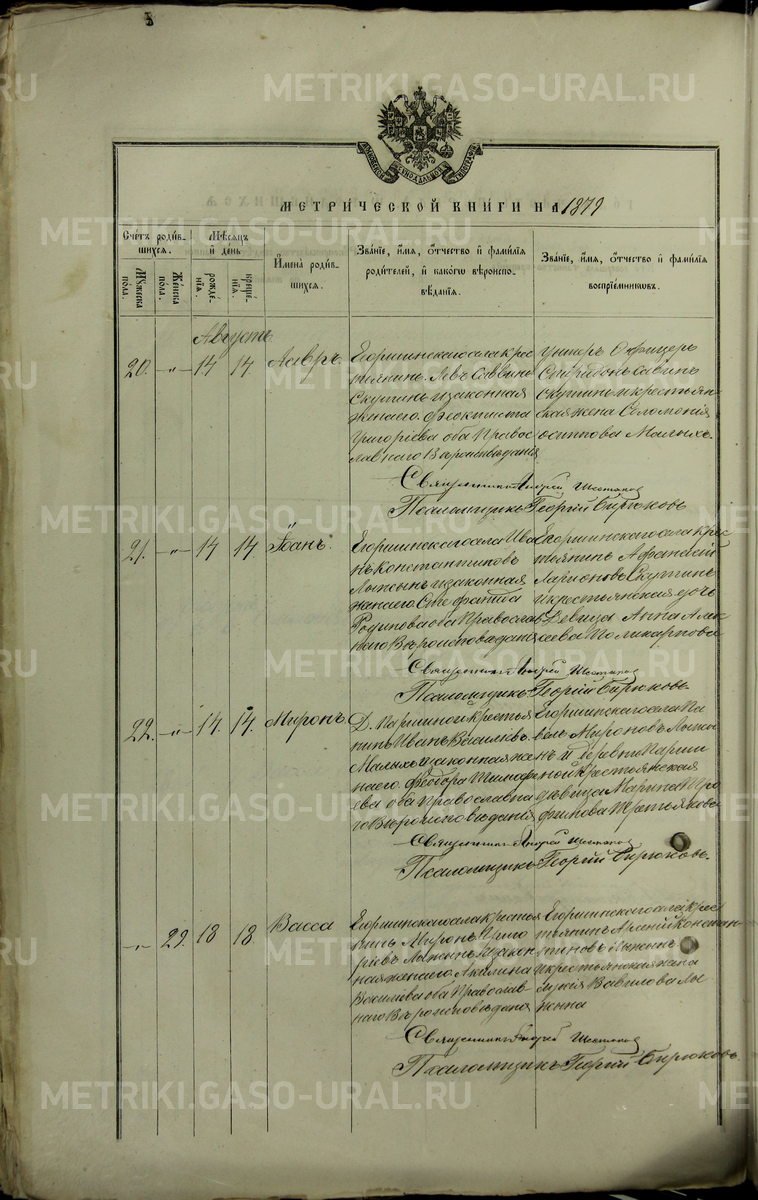 МЕТРИЧЕСКОЙ КНИГИ НА 1879
Счетъ родившихся.
Мужеска пола.
Женска пола.
Мѣсяцъ и день
рожденія.
крещенія.
Имена родившихся.
Званіе, имя, отчество и фамилія
родителей, и какого вѣроиспо-
вѣданія.
Званіе, имя, отчество и фамилія
воспріемниковъ.
Августъ
20. -"- 14 14
Егоршинскаго села крес
тьянинъ Левъ Саввинъ
Скутинъ и законная
жена его Феоктиста
Григоріева оба Правос
лавнаго Вѣроисповѣданія
Унтеръ Офицеръ
Спиридонъ Савинъ
Скутинъ и крестьян
ская жена Соломонія
Осиппова Малыхъ.
Священникъ Андрей Шестаковъ
Псаломщикъ Георгій Бирюковъ
21. -"- 14 14. Іоанъ.
Егоршинскаго села Ива
нъ Константиновъ
и законная
жена его Стефанида
Родинова оба Православ
наго Вѣроисповѣданія
Егоршинскаго села крес
тьянинъ Афанасій
Ларионовъ Скутинъ
и крестьянская дочь
Девица Анна Алек
сеева Поликарпова
Священникъ Андрей Шестаковъ
Псаломщикъ Георгій Бирюковъ.
22. -"- 14. 14. Миронъ
Д. Паршиной крестья
нинъ Иванъ Васильевъ
Малыхъ и законная же
на его Феодора Тимофе
ева оба Православна
го Вѣроисповѣданія
Егоршинскаго села Па
велъ Мироновъ
нъ и деревни Парши
ной крестьянская
дѣвица Марина Тро
фимова Третьякова
Священникъ Андрей Шестаковъ
Псаломщикъ Георгій Бирюковъ.
-"- 29. 18 18. Васса
Егоршинскаго села крестья
нинъ Миронъ Григо
рьевъ и закон
ная жена его Акилина
Васильева оба Православ
наго Вѣроисповѣданія
Егоршинскаго села крес
тьянинъ Арсеній Констан
тиновъ
и крестьянская жена
Вавилова
Священникъ Андрей Шестаковъ
Псаломщикъ Георгій Бирюковъ.
METRIKI.GASO-URAL.RU